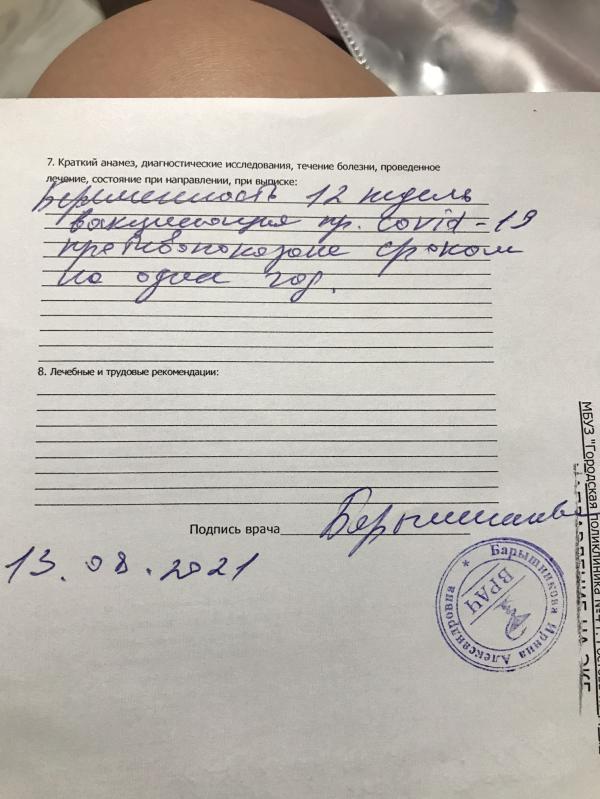 7. Краткий анамез, диагностические исследования, течение болезни, проведенное
лечение, состояние при направлении, при выписке:
Беременность 12 недель
вакцинация пр. covid-19
противопоказана сроком
на один год.
8. Лечебные и трудовые рекомендации:
Подпись врача
13.08.2021
* Барышникова Ирина Александровна
ВРАЧ
МБУЗ "Городская поликлиника №4 г.
НАПРАВЛЕНИЕ НА ЭКГ